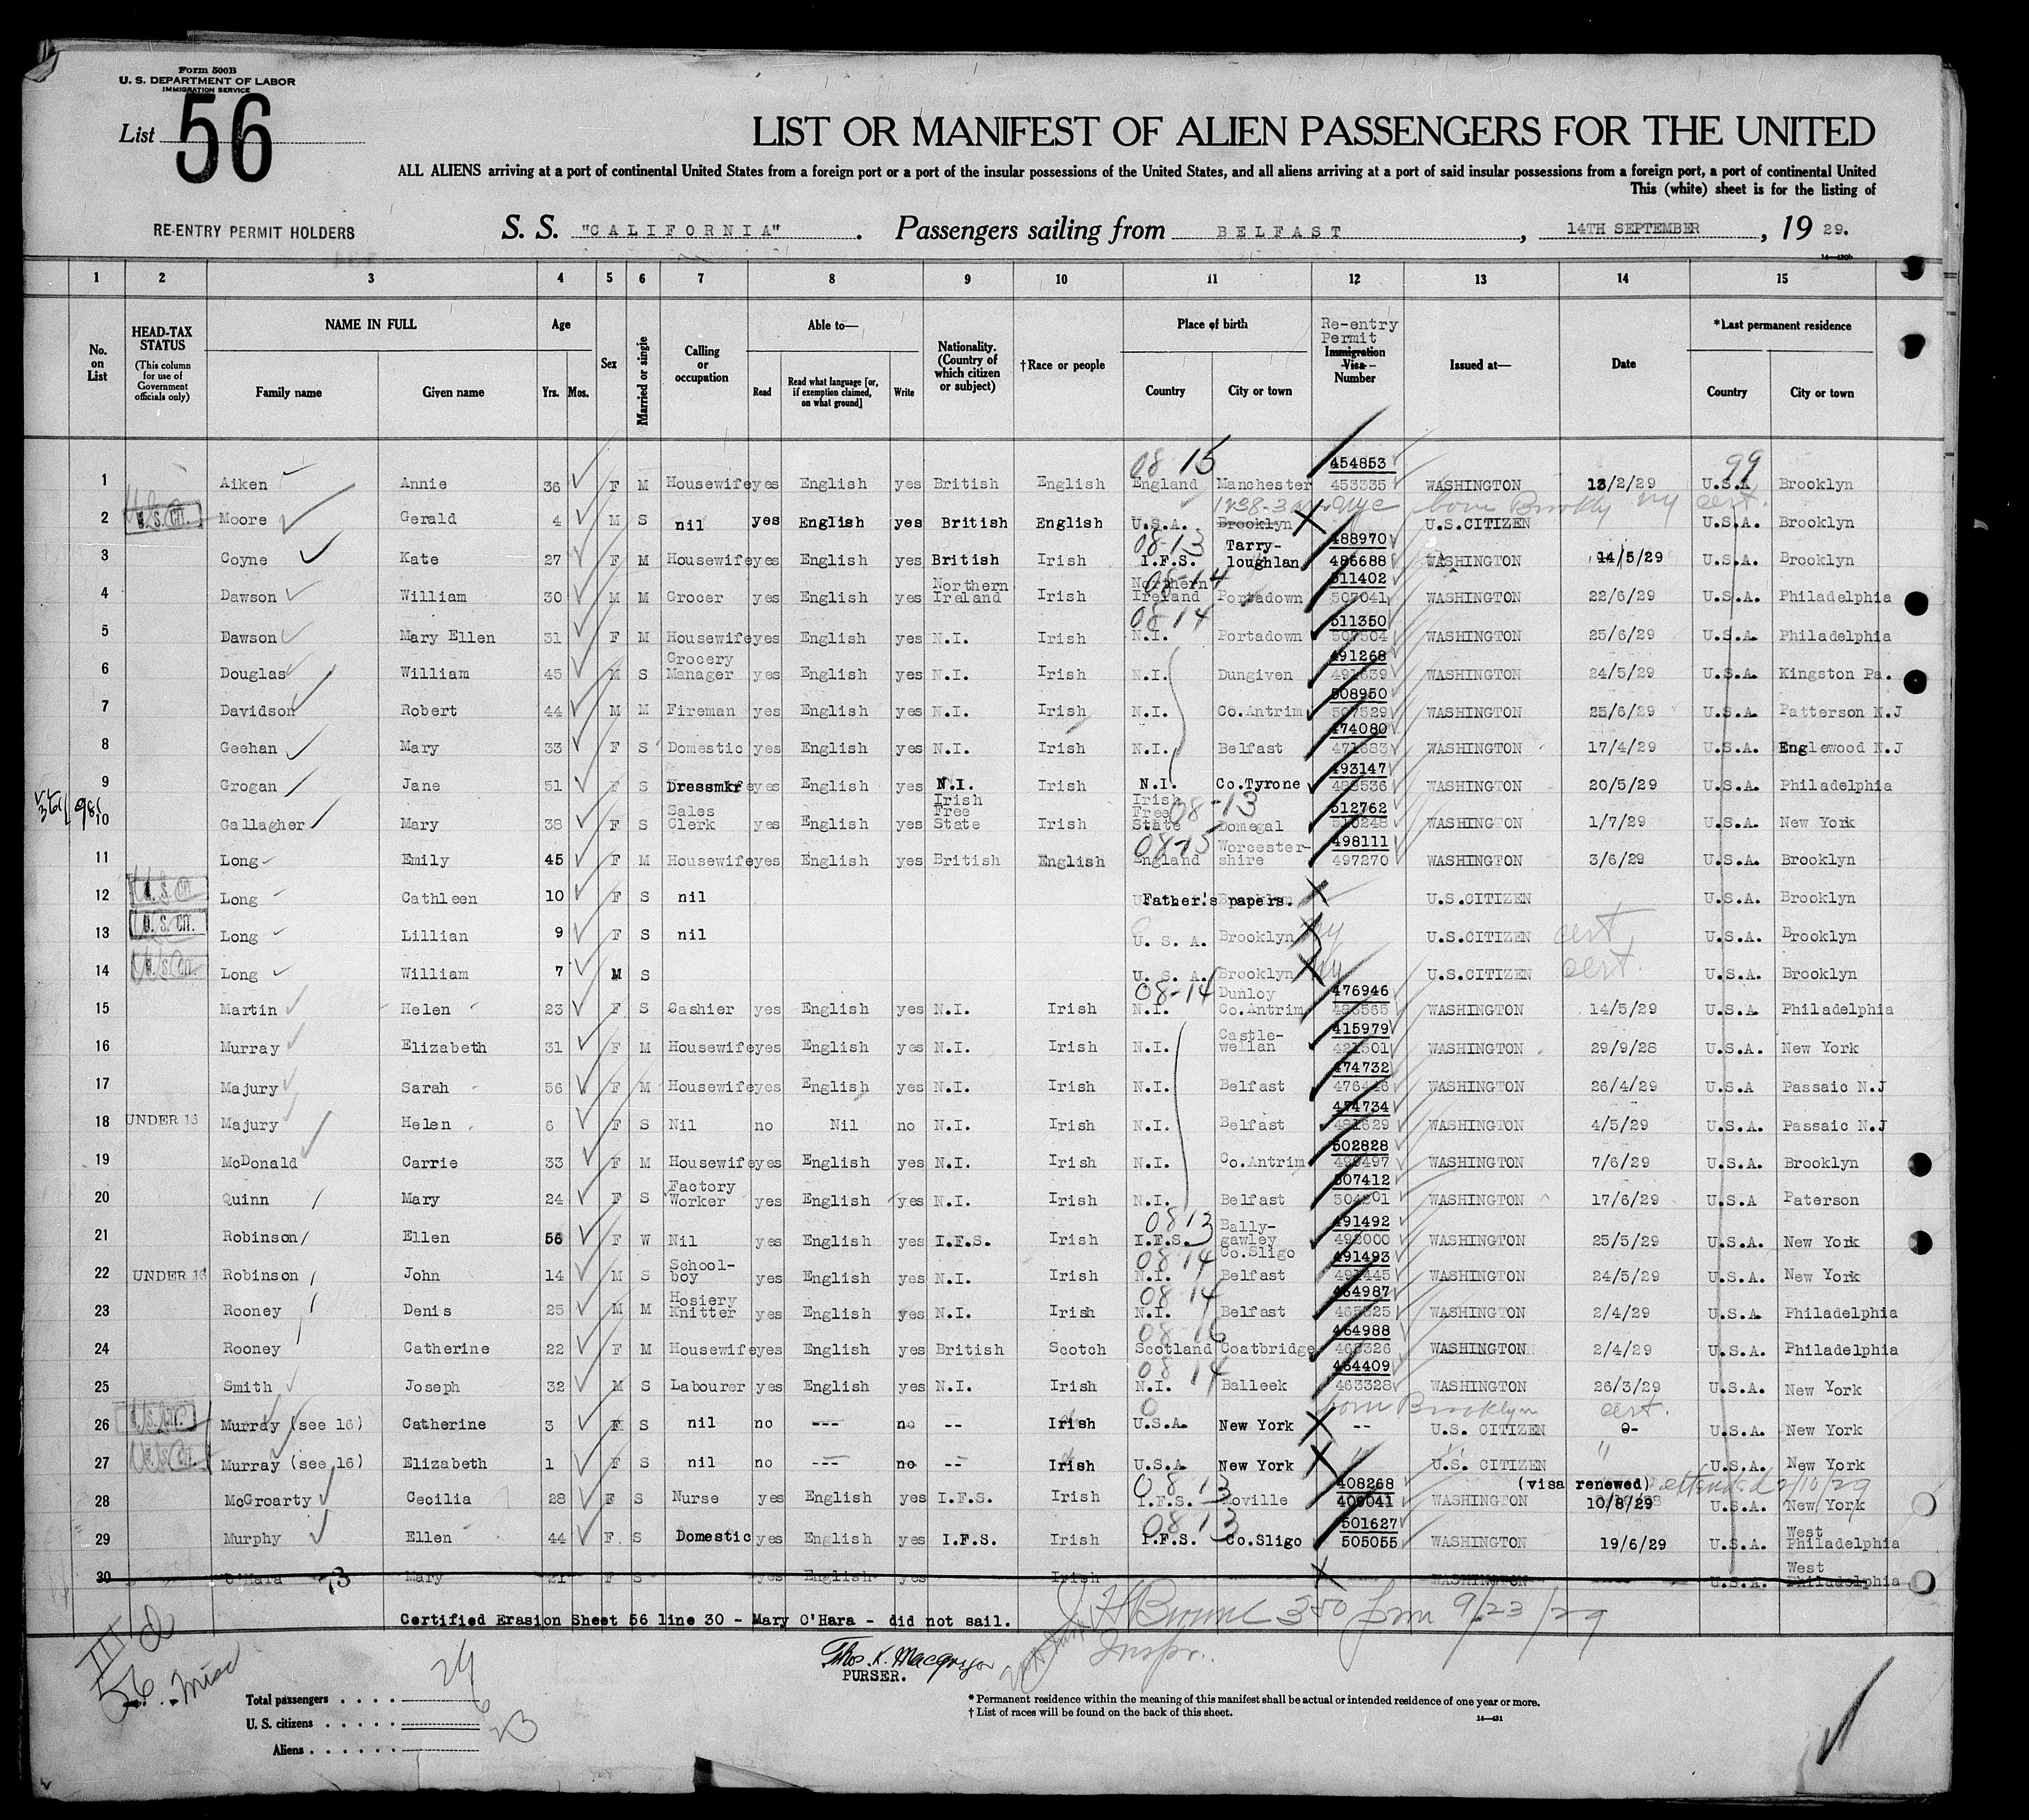 Form 500B
U. S. DEPARTMENT OF LABOR
IMMIGRATION SERVICE
List 56
LIST OR MANIFEST OF ALIEN PASSENGERS FOR THE UNITED
ALL ALIENS arriving at a port of continental United States from a foreign port or a port of the insular possessions of the United States, and all aliens arriving at a port of said insular possessions from a foreign port, a port of continental United
This (white) sheet is for the listing of
RE-ENTRY PERMIT HOLDERS
S. S. "CALIFORNIA". Passengers sailing from BELFAST, 14TH SEPTEMBER, 19 29.
1 2 3 4 5 6 7 8 9 10 11 12 13 14 15
No. on List
HEAD-TAX STATUS (This column for use of Government officials only)
NAME IN FULL Family name Given name
Age Yrs. Mos.
Sex
Married or single
Calling or occupation
Able to— Read Read what language [or, if exemption claimed, on what ground] Write
Nationality. (Country of which citizen or subject)
†Race or people
Place of birth Country City or town
Re-entry Permit Immigration Visa Number
Issued at—
Date
*Last permanent residence Country City or town
99
1 Aiken Annie 36 F M Housewife yes English yes British English 08-15 England Manchester 454853 453335 WASHINGTON 13/2/29 U.S.A Brooklyn
2 U.S. CIT. Moore Gerald 4 M S nil yes English yes British English U.S.A. Brooklyn U.S.CITIZEN U.S.A. Brooklyn
3 Coyne Kate 27 F M Housewife yes English yes British Irish 08-13 I.F.S. Tarry-loughlan 488970 486688 WASHINGTON 14/5/29 U.S.A. Brooklyn
4 Dawson William 30 M M Grocer yes English yes Northern Ireland Irish 08-14 Northern Ireland Portadown 511402 507041 WASHINGTON 22/6/29 U.S.A. Philadelphia
5 Dawson Mary Ellen 31 F M Housewife yes English yes N.I. Irish 08 14 N.I. Portadown 511350 507504 WASHINGTON 25/6/29 U.S.A. Philadelphia
6 Douglas William 45 M S Grocery Manager yes English yes N.I. Irish N.I. Dungiven 491268 WASHINGTON 24/5/29 U.S.A. Kingston Pa.
7 Davidson Robert 44 M M Fireman yes English yes N.I. Irish N.I. Co.Antrim 508950 507529 WASHINGTON 25/6/29 U.S.A. Patterson N.J
8 Geehan Mary 33 F S Domestic yes English yes N.I. Irish N.I. Belfast 474080 WASHINGTON 17/4/29 U.S.A. Englewood N.J
9 Grogan Jane 51 F S Dressmkr yes English yes N.I. Irish N.I. Co.Tyrone 493147 WASHINGTON 20/5/29 U.S.A. Philadelphia
10 Gallagher Mary 38 F S Sales Clerk yes English yes Irish Free State Irish Irish Free State 08-13 Donegal 512762 WASHINGTON 1/7/29 U.S.A. New York
11 Long Emily 45 F M Housewife yes English yes British English 08-15 England Worcester-shire 498111 497270 WASHINGTON 3/6/29 U.S.A. Brooklyn
12 U.S. CIT. Long Cathleen 10 F S nil Father's papers. U.S.CITIZEN U.S.A. Brooklyn
13 U.S. CIT. Long Lillian 9 F S nil U. S. A. Brooklyn ny U.S.CITIZEN cert U.S.A. Brooklyn
14 U.S. CIT. Long William 7 M S U. S. A. Brooklyn ny U.S.CITIZEN cert. U.S.A. Brooklyn
15 Martin Helen 23 F S Cashier yes English yes N.I. Irish 08-14 N.I. Dunloy Co.Antrim 476946 WASHINGTON 14/5/29 U.S.A Philadelphia
16 Murray Elizabeth 31 F M Housewife yes English yes N.I. Irish N.I. Castle-wellan 415979 WASHINGTON 29/9/28 U.S.A. New York
17 Majury Sarah 56 F M Housewife yes English yes N.I. Irish N.I. Belfast 474732 WASHINGTON 26/4/29 U.S.A Passaic N.J
18 UNDER 16 Majury Helen 6 F S Nil no Nil no N.I. Irish N.I. Belfast 474734 WASHINGTON 4/5/29 U.S.A. Passaic N.J
19 McDonald Carrie 33 F M Housewife yes English yes N.I. Irish N.I. Co.Antrim 502828 WASHINGTON 7/6/29 U.S.A. Brooklyn
20 Quinn Mary 24 F S Factory Worker yes English yes N.I. Irish N.I. Belfast 507412 WASHINGTON 17/6/29 U.S.A Paterson
21 Robinson Ellen 56 F W Nil yes English yes I.F.S. Irish 08 13 I.F.S. Bally-gawley Co.Sligo 491492 WASHINGTON 25/5/29 U.S.A. New York
22 UNDER 16 Robinson John 14 M S School-boy yes English yes N.I. Irish 08 14 N.I. Belfast 491493 WASHINGTON 24/5/29 U.S.A. New York
23 Rooney Denis 25 M M Hosiery Knitter yes English yes N.I. Irish 08 14 N.I. Belfast 464987 WASHINGTON 2/4/29 U.S.A Philadelphia
24 Rooney Catherine 22 F M Housewife yes English yes British Scotch 08 16 Scotland Coatbridge 464988 WASHINGTON 2/4/29 U.S.A. Philadelphia
25 Smith Joseph 32 M S Labourer yes English yes N.I. Irish 08 14 N.I. Balleek 464409 463328 WASHINGTON 26/3/29 U.S.A. New York
born Brooklyn cert.
26 U.S. CIT. Murray (see 16) Catherine 3 F S nil no --- no -- Irish U.S.A. New York -- U.S. CITIZEN U.S.A. New York
27 U.S. CIT. Murray (see 16) Elizabeth 1 F S nil no --- no -- Irish U.S.A New York U.S. CITIZEN U.S.A. New York
28 McGroarty Cecilia 28 F S Nurse yes English yes I.F.S. Irish 08 13 I.F.S. Moville 408268 409041 (visa renewed) 10/8/29 U.S.A. New York
29 Murphy Ellen 44 F S Domestic yes English yes I.F.S. Irish 08 13 I.F.S. Co.Sligo 501627 505055 WASHINGTON 19/6/29 U.S.A. West Philadelphia
30 O'Hara Mary 21 F S yes English yes Irish WASHINGTON U.S.A. West Philadelphia
Certified Erasion Sheet 56 line 30 - Mary O'Hara - did not sail.
9/23/29
Inspr.
Thos. K. Macgregor
PURSER.
56 Misc
Total passengers 29
U. S. citizens 6
Aliens 23
* Permanent residence within the meaning of this manifest shall be actual or intended residence of one year or more.
† List of races will be found on the back of this sheet.
14—431